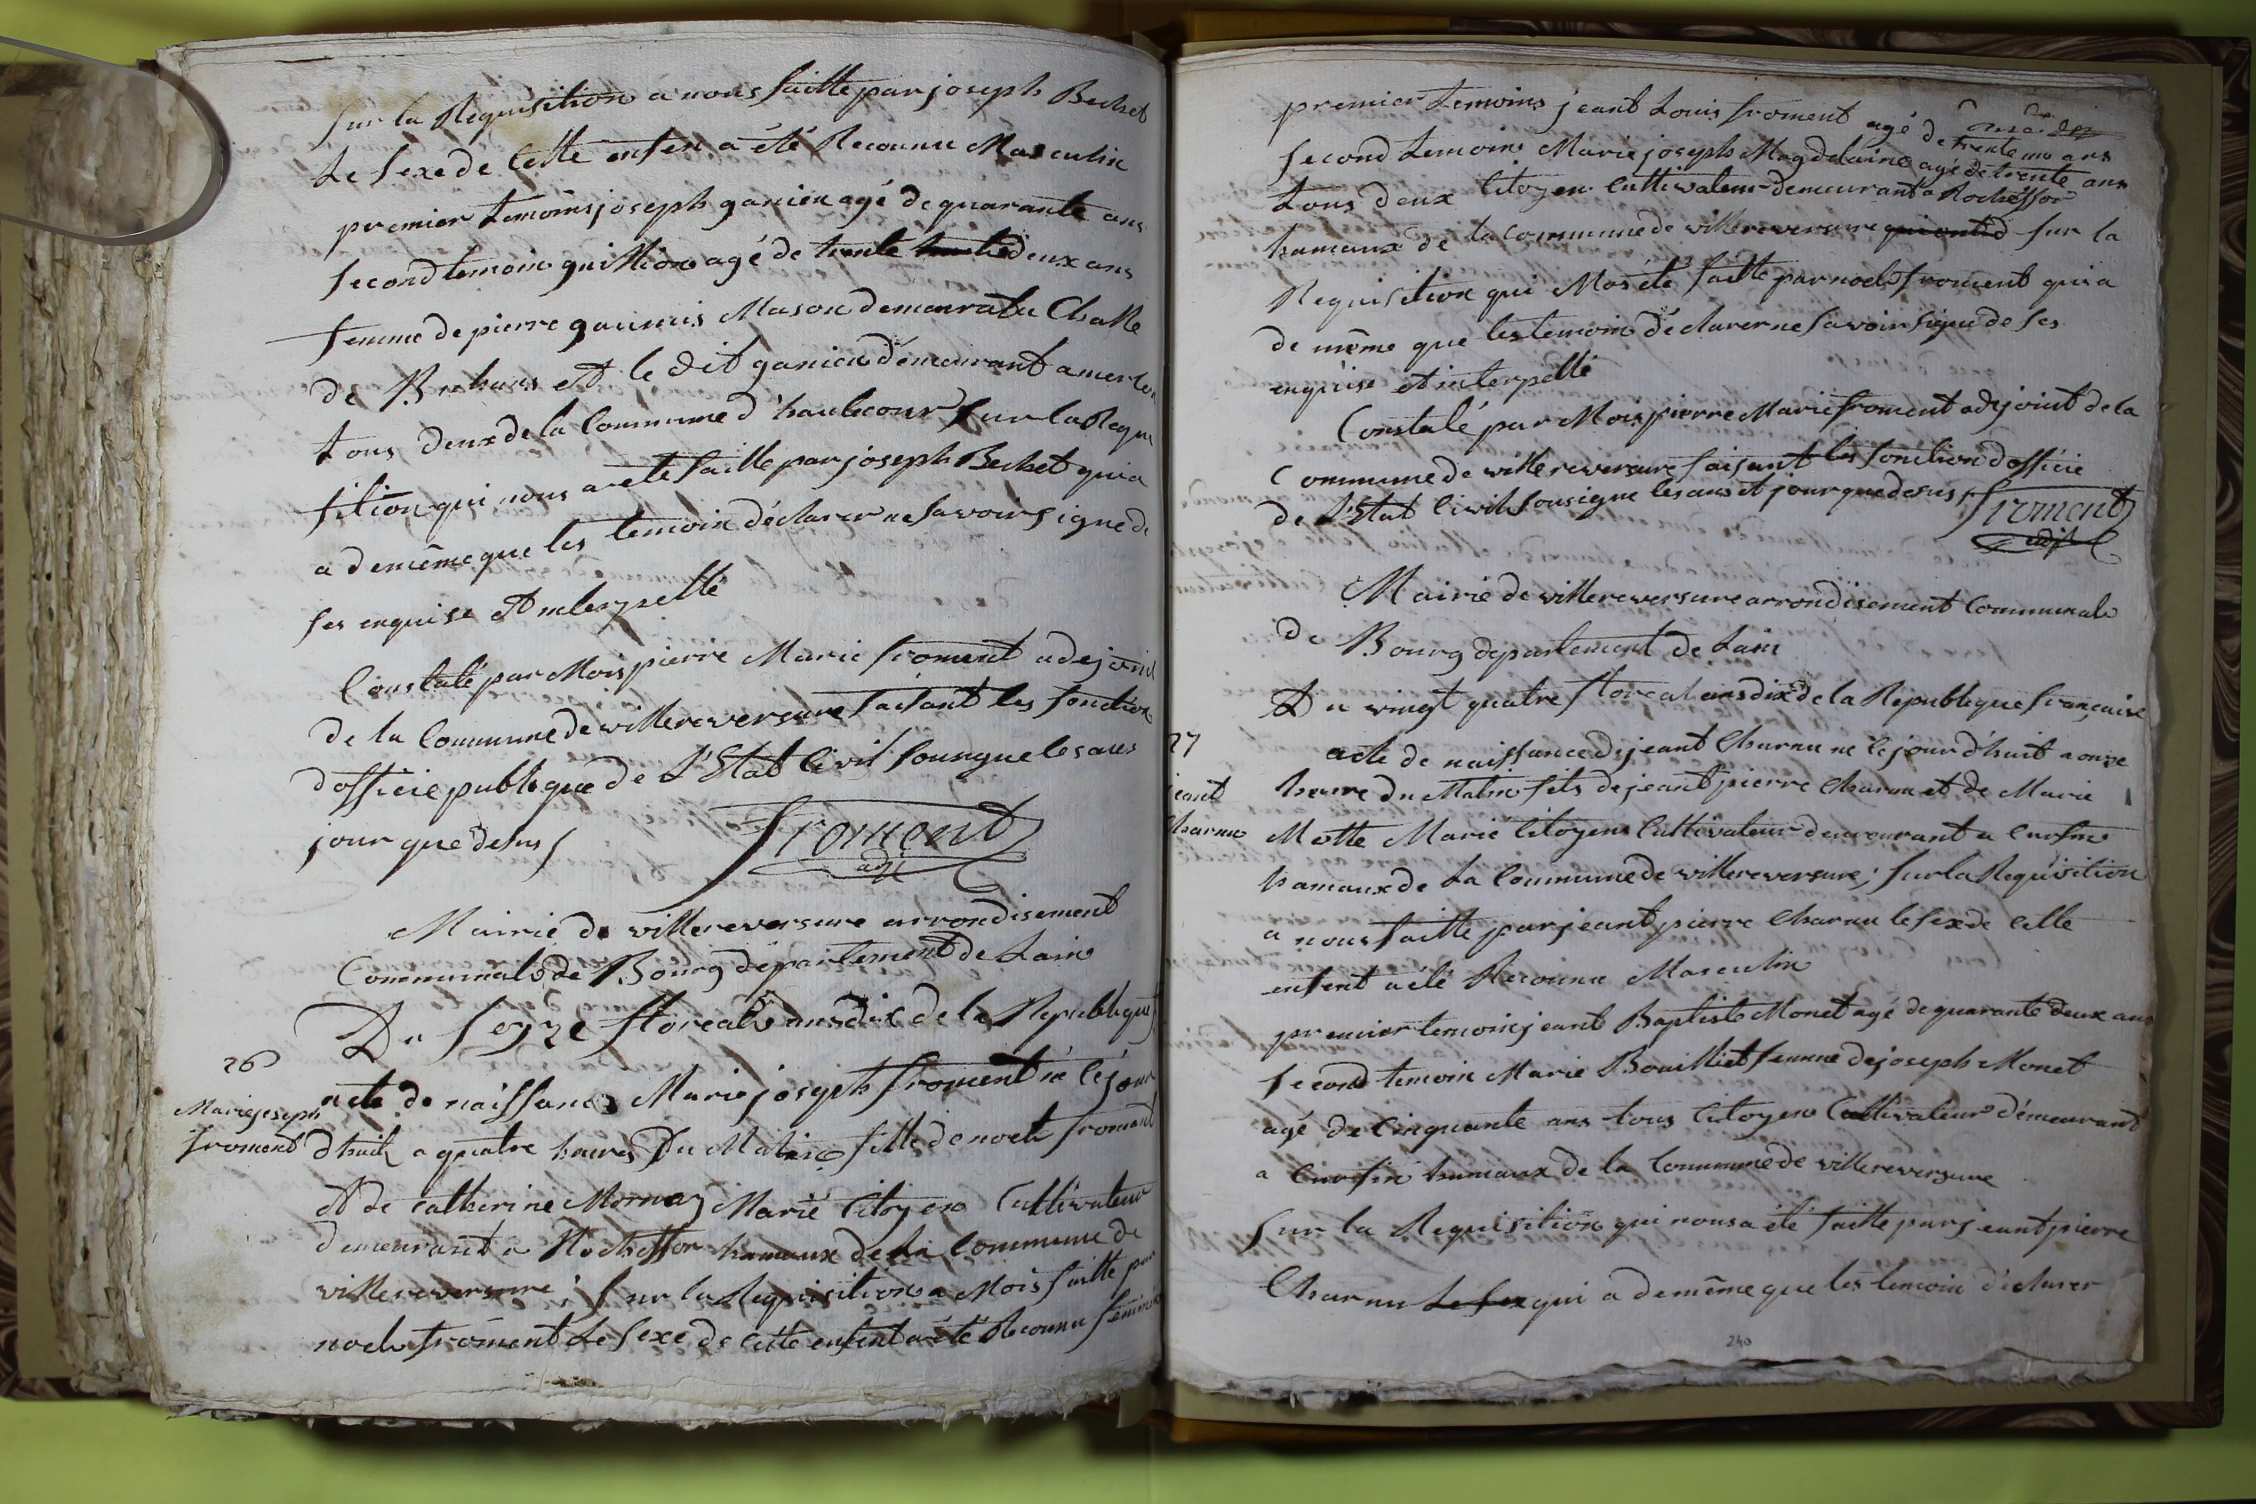 Sur la Requisition a nous faitte par joseph Bechet
Le sexe de Cette enfen a été Reconnu Masculin
premier temoins joseph ganieu agé de quarante ans
second temoin guillion agé de trente deux ans
femme de pierre Mason demeurat a Challe
de et le dit ganieu démeurant a
tous deux de la Commune d'hautecour sur la Requi
sition qui nous a été faitte par joseph Bechet qui a
a de même que les temoin déclarer ne savoir signe de
ses enquise et interpellé
Constaté par Mois pierre Marie froment adejoint
de la Commune de villereversure faisant les fonction
dofficie publique de L'Etat Civil sousigne les ans
jour que desus
froment
adj
Mairie de villereversure arrondisement
Communale de Bourg département de Lain
Du seyze floreal ans dix de la Republique
26
Marie joseph
froment
acte de naissance Marie joseph froment né le jour
dhuit a quatre heures Du Matin fille de noel froment
et de Catherine Mornay Marié Citoyen Cultivateur
demeurant a Rochesfor hamaux de La Commune de
villereversure ; sur la Requisition a Mois faitte par
noel froment Le sexe de cette enfent a été Reconnu féminin
premier temoins jeant Louis froment agé de trente un ans
second temoin Marie joseph Magdelaine agé de trente ans
tous deux Citoyen Cultivateur demeurant a Rochesfor
hamaux de la Commune de villereversure sur la
Requisition qui Mos été faitte par noel froment qui a
de même que les temoin déclarer ne savoir signé de ses
enquise et interpellé
Constaté par Mois pierre Marie froment adejoint de la
Commune de villereversure faisant les fonction d'officie
de L'Etat Civil sousigne les ans et jour que desus
froment
adj
Mairie de villereversure arrondisement Communale
de Bourg département de Lain
Du vingt quatre floreal ans dix de la Republique française
27
jeant
Charnu
acte de naissance de jeant Charnu né le jour d'huit a onze
heure du Matin fils de jeant pierre Charnu et de Marie
Motte Marié Citoyen Cultivateur demeurant a Cuvsin
hamaux de La Commune de villereversure ; sur la Requisition
a nous faitte par jeant pierre Charnu le sexe de Cette
enfent a été Reconnu Masculin
premier temoin jeant Baptiste Monet agé de quarante deux ans
second temoin Marie Bouilliet femme de joseph Monet
agé de Cinquante ans tous Citoyen Cultivateur démeurant
a Cuvsin hamaux de la Commune de villereversure
Sur la Requisition qui nous a été faitte par jeant pierre
Charnu Le sex qui a de même que les temoin déclarer
240